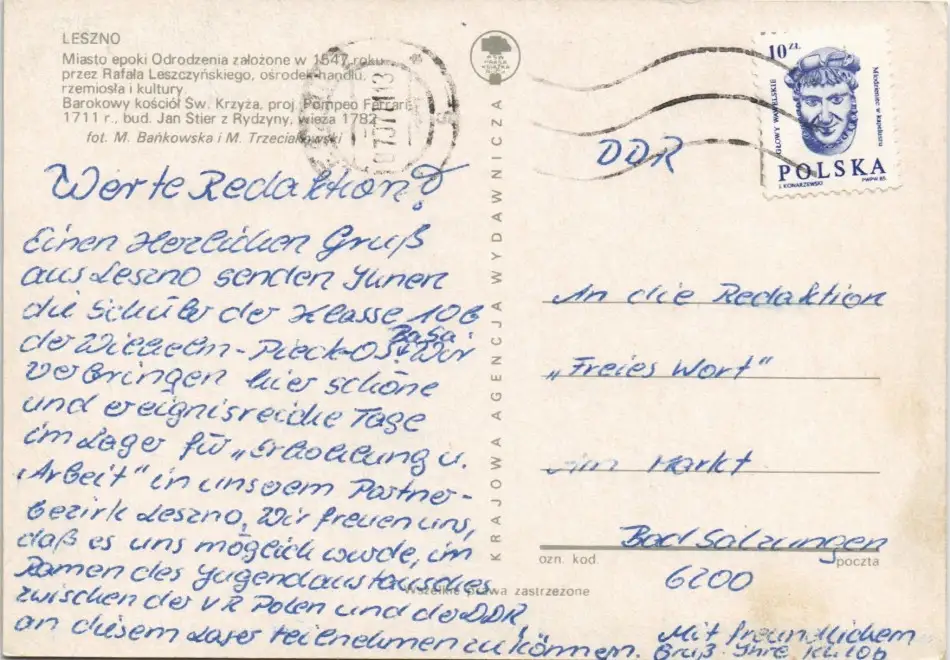 LESZNO
Miasto epoki Odrodzenia założone w 1547 roku
przez Rafała Leszczyńskiego, ośrodek handlu,
rzemiosła i kultury
Barokowy kościół Św. Krzyża, proj. Pompeo Ferrare
1711 r., bud. Jan Stier z Rydzyny, wieża 1782
fot. M. Bańkowska i M. Trzeciakowski
Werte Redaktion!
Einen Herzlichen Gruß
aus Leszno senden Ihnen
die Schüler der Klasse 10b
der Wilhelm-Pieck-OS BaSa. Wir
verbringen hier schöne
und ereignisreiche Tage
im Lager für „Erholung u.
Arbeit" in unserem Partner-
bezirk Leszno. Wir freuen uns,
daß es uns möglich wurde, im
Ramen des Jugendaustausches
zwischen der VR Polen und der DDR,
an diesem Lager teilnehmen zu können.
Mit freundlichem
Gruß Ihre Kl. 10b
KRAJOWA AGENCJA WYDAWNICZA
Wszelkie prawa zastrzeżone
10 ZŁ
GŁOWY WAWELSKIE
Młodzieniec w kapeluszu
POLSKA
J. KONARZEWSKI
PWPW 85
DDR
An die Redaktion
„Freies Wort"
Am Markt
Bad Salzungen
ozn. kod.
poczta
6200